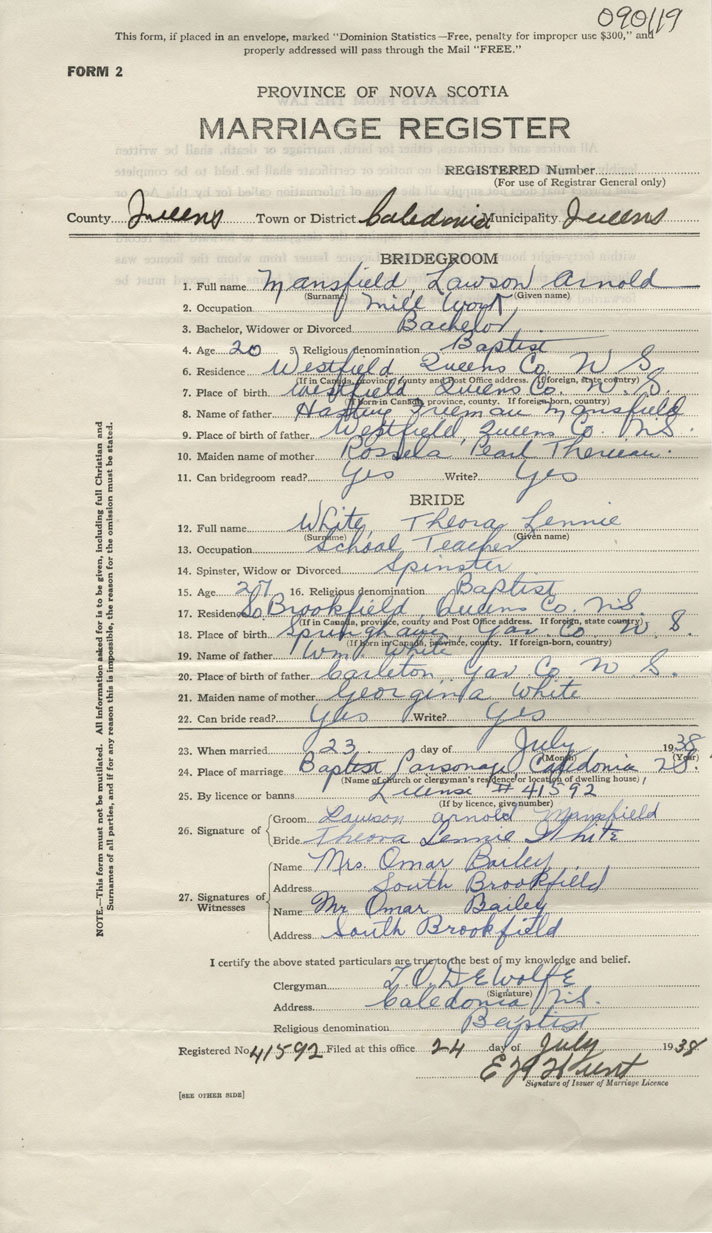 090119
This form, if placed in an envelope, marked "Dominion Statistics—Free, penalty for improper use $300," and
properly addressed will pass through the Mail "FREE."
FORM 2
PROVINCE OF NOVA SCOTIA
MARRIAGE REGISTER
REGISTERED Number
(For use of Registrar General only)
County Queens Town or District Caledonia Municipality Queens
BRIDEGROOM
1. Full name Mansfield, Lawson Arnold
(Surname) (Given name)
2. Occupation Mill Work
3. Bachelor, Widower or Divorced Bachelor
4. Age 20 5. Religious denomination Baptist
6. Residence Westfield Queens Co. N S
(If in Canada, province, county and Post Office address. If foreign, state country)
7. Place of birth Westfield Queens Co. N. S.
(If born in Canada, province, county. If foreign-born, country)
8. Name of father Freeman Mansfield
9. Place of birth of father Westfield, Queens Co. N.S.
10. Maiden name of mother Pearl
11. Can bridegroom read? Yes Write? Yes
BRIDE
12. Full name White, Theora Lennie
(Surname) (Given name)
13. Occupation School Teacher
14. Spinster, Widow or Divorced Spinster
15. Age 27 16. Religious denomination Baptist
17. Residence So. Brookfield, Queens Co. N.S.
(If in Canada, province, county and Post Office address. If foreign, state country)
18. Place of birth Springhaven, Yar. Co. N. S.
(If born in Canada, province, county. If foreign-born, country)
19. Name of father Wm. White
20. Place of birth of father Carleton, Yar Co. N S.
21. Maiden name of mother Georginia White
22. Can bride read? Yes Write? Yes
23. When married 23 day of July 1938
(Month) (Year)
24. Place of marriage Baptist Parsonage, Caledonia N.S.
(Name of church or clergyman's residence or location of dwelling house)
25. By licence or banns License # 41592
(If by licence, give number)
26. Signature of { Groom Lawson Arnold Mansfield
Bride Theora Lennie White
27. Signatures of Witnesses { Name Mrs. Omar Bailey
Address South Brookfield
Name Mr Omar Bailey
Address South Brookfield
I certify the above stated particulars are true to the best of my knowledge and belief.
Clergyman DeWolfe
(Signature)
Address Caledonia N.S.
Religious denomination Baptist
Registered No. 41592 Filed at this office 24 day of July 1938
Hunt
Signature of Issuer of Marriage Licence
[SEE OTHER SIDE]
NOTE.—This form must not be mutilated. All information asked for is to be given, including full Christian and
Surnames of all parties, and if for any reason this is impossible, the reason for the omission must be stated.